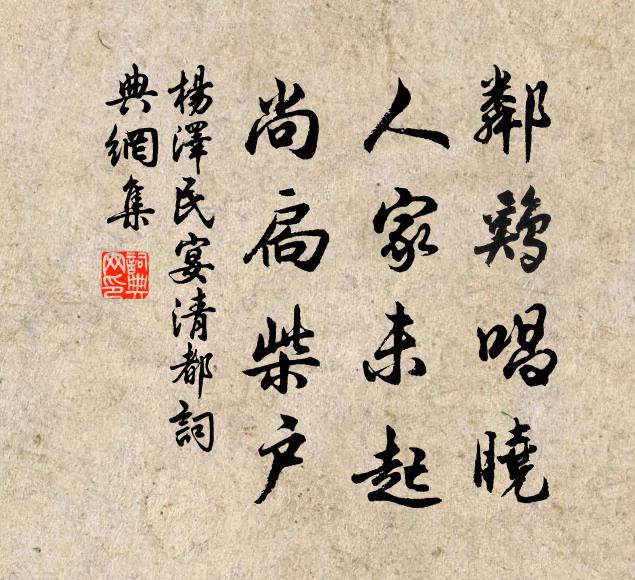 鄰鷄唱曉
人家未起
尚扃柴户
楊澤民宴清都詞
典網集
詞典網印